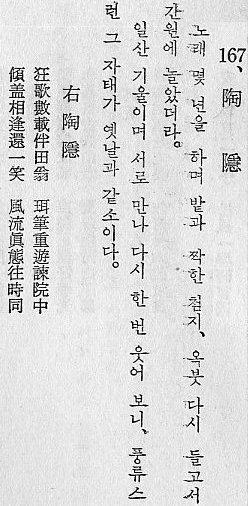 167、陶隱
노래 몇 년을 하며 밭과 짝한 첨지、옥붓 다시 들고서
간원에 놀았더라。
일산 기울이며 서로 만나 다시 한 번 웃어 보니、풍류스
런 그 자태가 옛날과 같소이다。
右陶隱
狂歌數載伴田翁　珥筆重遊諫院中
傾盖相逢還一笑　風流眞態往時同